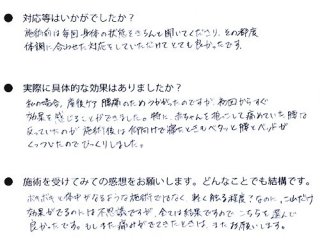 ● 対応等はいかがでしたか？
施術前は毎回、身体の状態をきちんと聞いてくださり、その都度
体調に合わせた対応をしていただけてとても良かったです。
● 実際に具体的な効果はありましたか？
私の場合、産後ケア、腰痛のためうかがったのですが、初回からすぐ
効果を感じることができました。特に、赤ちゃんを抱っこして痛めていた腰は
反っていたのが施術後は仰向けで寝たときもペタッと腰がベッドが
くっついたのでびっくりしました。
● 施術を受けてみての感想をお願いします。どんなことでも結構です。
ボキボキと体中がなるような施術ではなく、軽く触る程度?なのに、これだけ
効果がでるのには不思議ですが、全ては結果ですのでこちらを選んで
良かったです。もしまた痛みがでてきたときは、またお願いします。